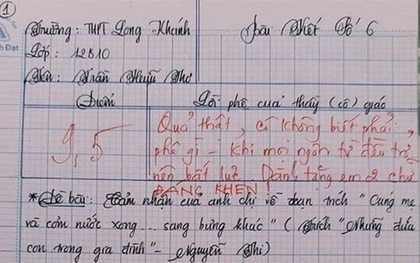 1
Trường: THPT Long Khánh Bài Viết Số 6
Lớp: 12B10
Tên: Trần Thuỵ Thơ
Điểm Lời phê của thầy (cô) giáo
9,5 Quả thật, cô không biết phải
phê gì - Khi mọi ngôn từ đều trở
nên bất lực. Dành tặng em 2 chữ
ĐÁNG KHEN!
*Đề bài: Cảm nhận của anh chị về đoạn trích "Cúng mẹ
và cơm nước xong... sang bưng khác" (Trích "Những đứa
con trong gia đình" - Nguyễn Thi)